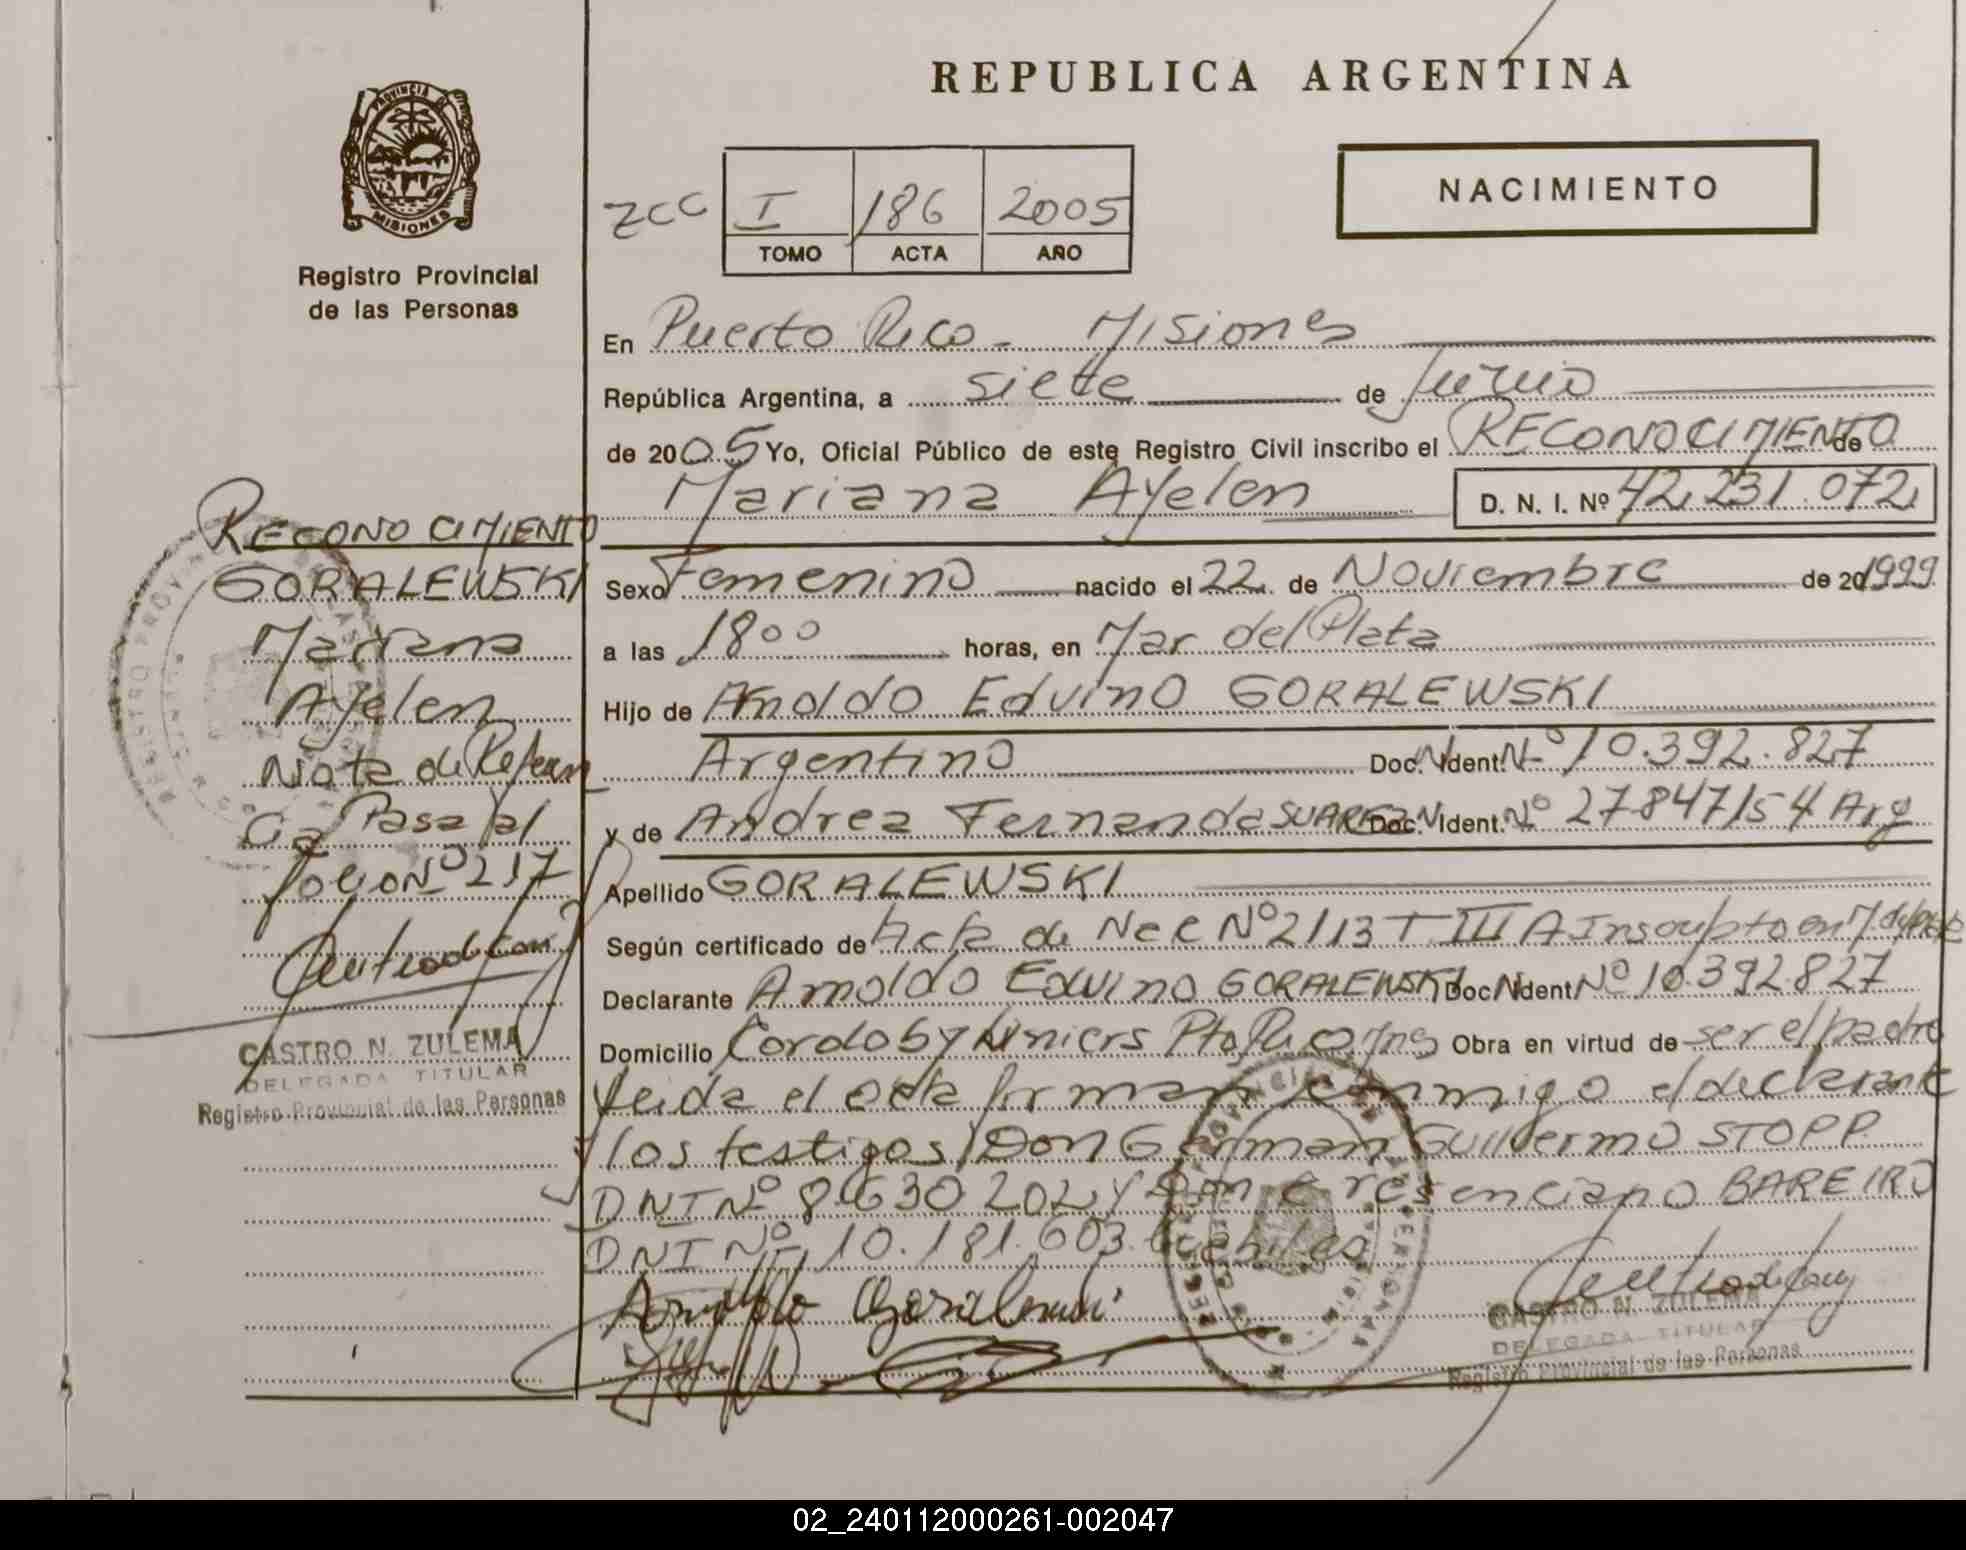 REPUBLICA ARGENTINA
PROVINCIA DE
MISIONES
Registro Provincial
de las Personas
NACIMIENTO
ZCC I 186 2005
TOMO ACTA AÑO
En Puerto Rico - Misiones
República Argentina, a siete de Junio
de 2005 Yo, Oficial Público de este Registro Civil inscribo el RECONOCIMIENTO de
Mariana Ayelen D. N. I. Nº 42.231.072
Sexo Femenino nacido el 22 de Noviembre de 20 1999
a las 18 00 horas, en Mar del Plata
Hijo de Arnoldo Edvino GORALEWSKI
Argentino Doc. Ident. Nº 10.392.827
y de Andrea Fernanda SUAREZ Doc. Ident. Nº 27847154 Arg
Apellido GORALEWSKI
Según certificado de Acta de Nac Nº 2113 T III A Inscripto en M. del Plata
Declarante Arnoldo Edvino GORALEWSKI Doc. Ident Nº 10.392.827
Domicilio Cordoba y Liniers Pto Rico Mnes Obra en virtud de ser el padre
Leida el acta firman conmigo el declarante
y los testigos Don German Guillermo STOPP
DNI Nº 8.630.202 y Don Cresenciano BAREIRO
DNI Nº 10.181.603.
Arnoldo Goralewski
CASTRO N. ZULEMA
DELEGADA TITULAR
Registro Provincial de las Personas
RECONOCIMIENTO
GORALEWSKI
Mariana
Ayelen
Nota de Referen
cia Pasa al
folio Nº 217
CASTRO N. ZULEMA
DELEGADA TITULAR
Registro Provincial de las Personas
02_240112000261-002047